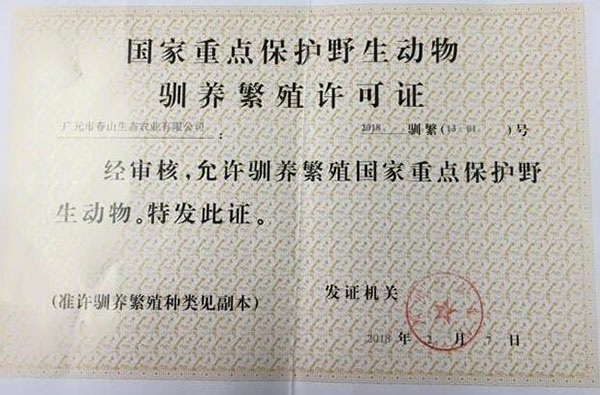 国家重点保护野生动物
驯养繁殖许可证
广元市春山生态农业有限公司： 2018 驯繁(13-01 )号
经审核，允许驯养繁殖国家重点保护野
生动物。特发此证。
(准许驯养繁殖种类见副本)
发证机关
2018 年 2 月 7 日